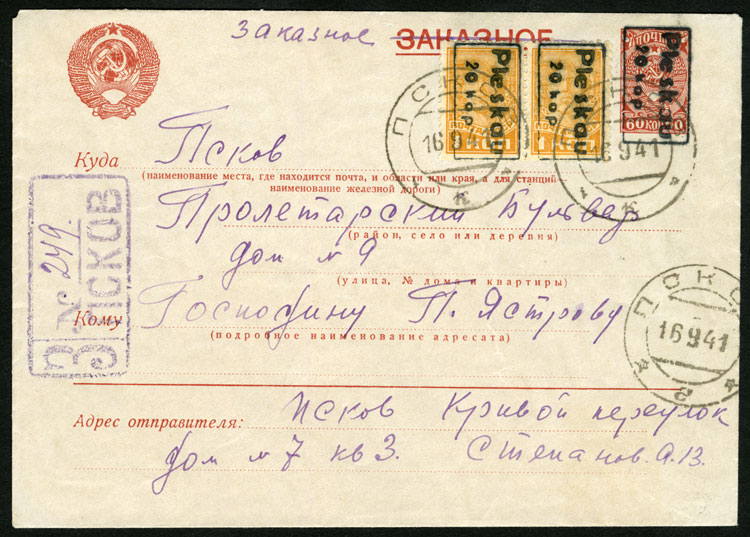 заказное ЗАКАЗНОЕ
Pleskau
20 kop
Pleskau
20 kop
Pleskau
20 kop
ПОЧТА
60 КОП
16 9 41
16 9 41
Куда Псков
(наименование места, где находится почта, и области или края, а для станций
наименование железной дороги)
Пролетарский Бульвар
(район, село или деревня)
дом № 9
(улица, № дома и квартиры)
Кому Господину П. Ястрову
(подробное наименование адресата)
З ПСКОВ
№ 249
ПСКОВ
16 9 41
2
Адрес отправителя: Псков Кривой переулок
дом № 7 кв 3. Степанов. А.В.